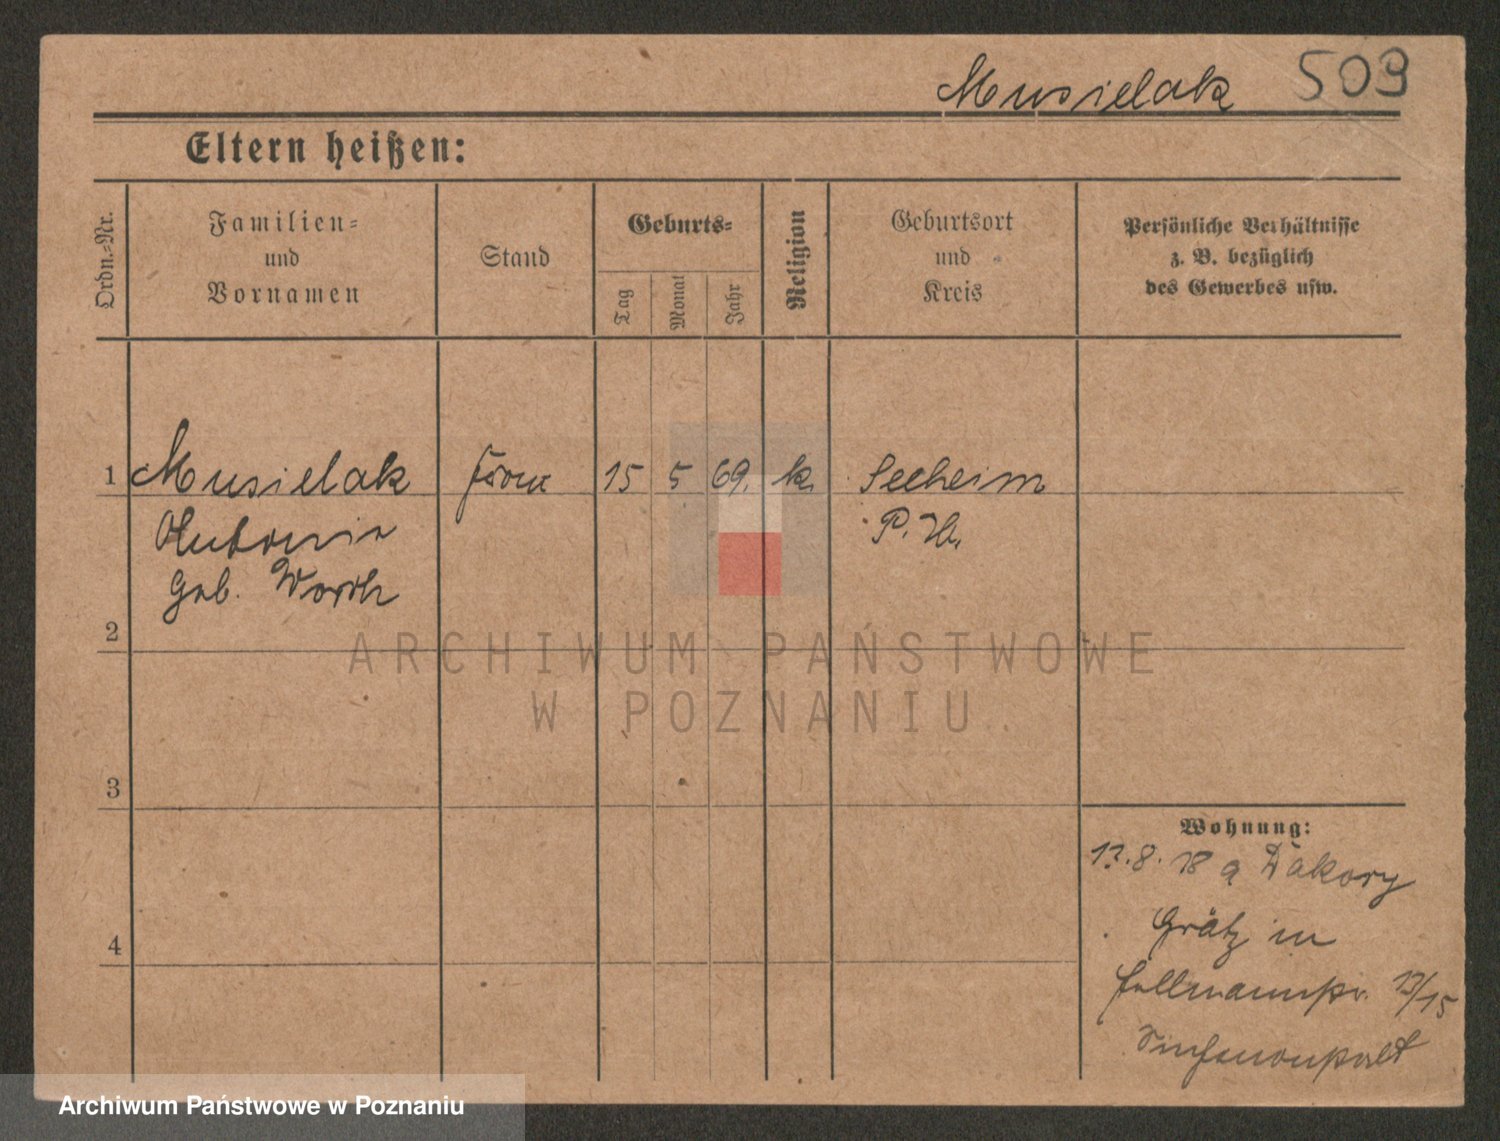 Musielak 509
Eltern heißen:
Ordn.-Nr.
Familien-
und
Vornamen
Stand
Geburts-
Tag
Monat
Jahr
Religion
Geburtsort
und
Kreis
Persönliche Verhältnisse
z. B. bezüglich
des Gewerbes usw.
1 Musielak 15 5 69. k. Seeheim
Antonia
geb. Worth
2
3
4
Wohnung:
8. 18 a Dakory
Grätz in
13/15
ARCHIWUM PAŃSTWOWE
W POZNANIU
Archiwum Państwowe w Poznaniu